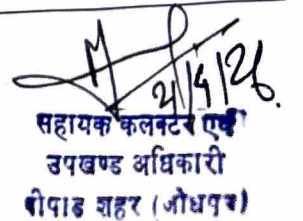 21/4/26.
सहायक कलक्टर एवं
उपखण्ड अधिकारी
पीपाड शहर (जोधपुर)